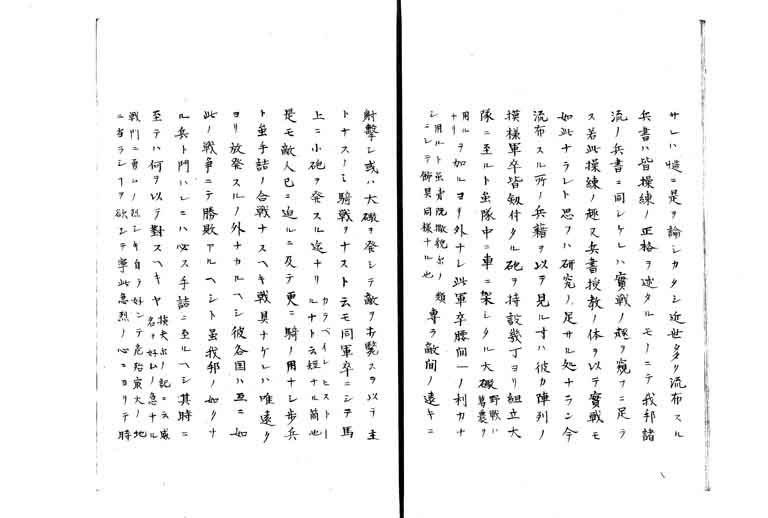 サレハ慥ニ是ヲ論シカタシ近世多ク流布スル
兵書ハ皆操練ノ正格ヲ述タルモノニテ我邦諸
流ノ兵書ニ同シケレハ實戦ノ趣ヲ窺フニ足ラ
ス若此操練ノ趣又兵書授教ノ体ヲ以テ實戦モ
如此ナラント思フハ研究ノ足サル処ナラン今
流布スル所ノ兵籍ヲ以テ見ル寸ハ彼カ陣列ノ
模様軍卒皆釼付タル砲ヲ持設幾丁ヨリ組立大
隊ニ至ルト虽隊中ニ車ニ架シタル大礟
野戦ニ
用ル
ナリ
ヲ加ルヨリ外ナシ此軍卒腰間一ノ利刀ナ
シ
用ルト虽
ニシテ飾具同様ナル也
専ラ敵間ノ遠キニ
射撃シ或ハ大礟ヲ発シテ敵ヲ
スヲ以テ主
トナス
騎戦ヲナスト云モ同軍卒ニシテ馬
上ニ小砲ヲ発スル迄ナリ
カラベイン
ルナト云短ナル筒也
是モ敵人已ニ迫ルニ及テ更ニ騎ノ用ナシ歩兵
ト虽手詰ノ合戦ナスヘキ戦具ナケレハ唯遠ク
ヨリ放発スルノ外ナカルヘシ彼各国ハ互ニ如
此ノ戦争ニテ勝敗アルヘシト虽我邦ノ如クナ
ル兵ト鬥ハンニハ必ス手詰ニ至ルヘシ其時ニ
至テハ何ヲ以テ對スヘキヤ
ノ記ニ云威
名ヲ好ムノ急ナル
戦鬥ニ勇ムノ烈シキ自ラ好ンテ危殆寅大ノ地
ニ当ランヿヲ欲シテ寧此急烈ノ心ニヨリテ時